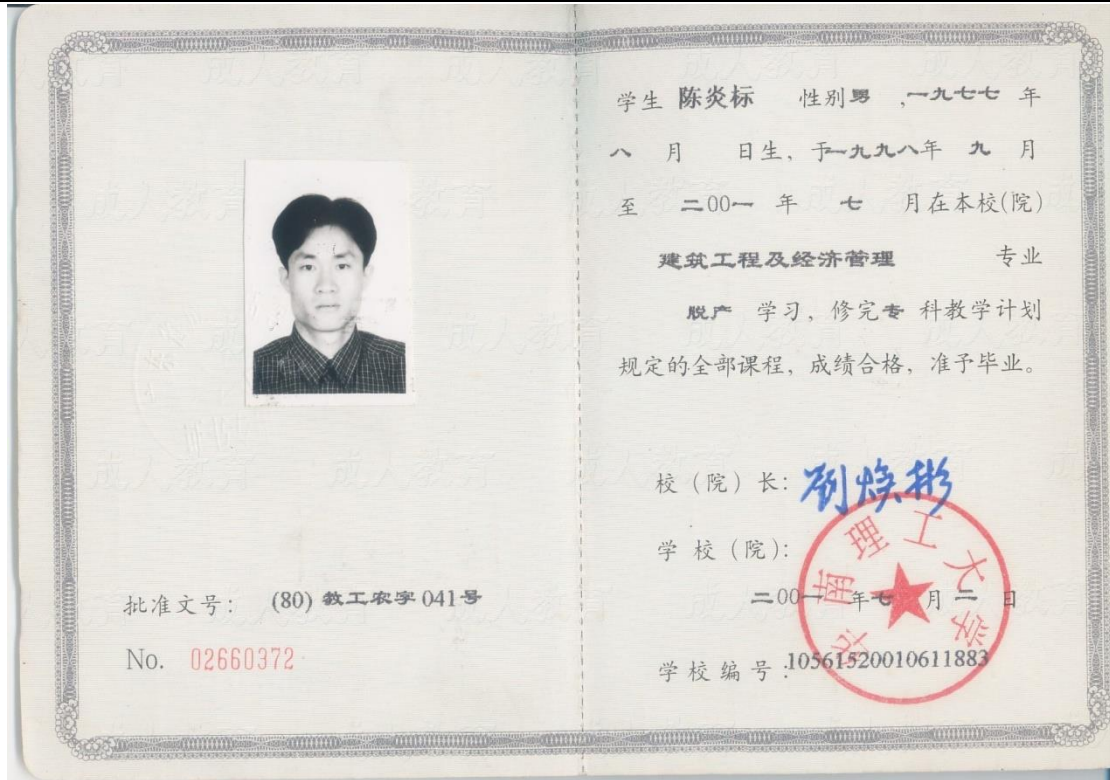 批准文号： (80) 教工农字 041号
No. 02660372
学生 陈炎标 性别男 ,一九七七 年
八 月 日生，于一九九八年 九 月
至 二00一 年 七 月在本校(院)
建筑工程及经济管理 专业
脱产 学习，修完专 科教学计划
规定的全部课程，成绩合格，准予毕业。
校（院）长： 刘焕彬
学 校（院）：
华南理工大学
二00一 年七 月 二 日
学 校 编 号：10561520010611883
成人教育